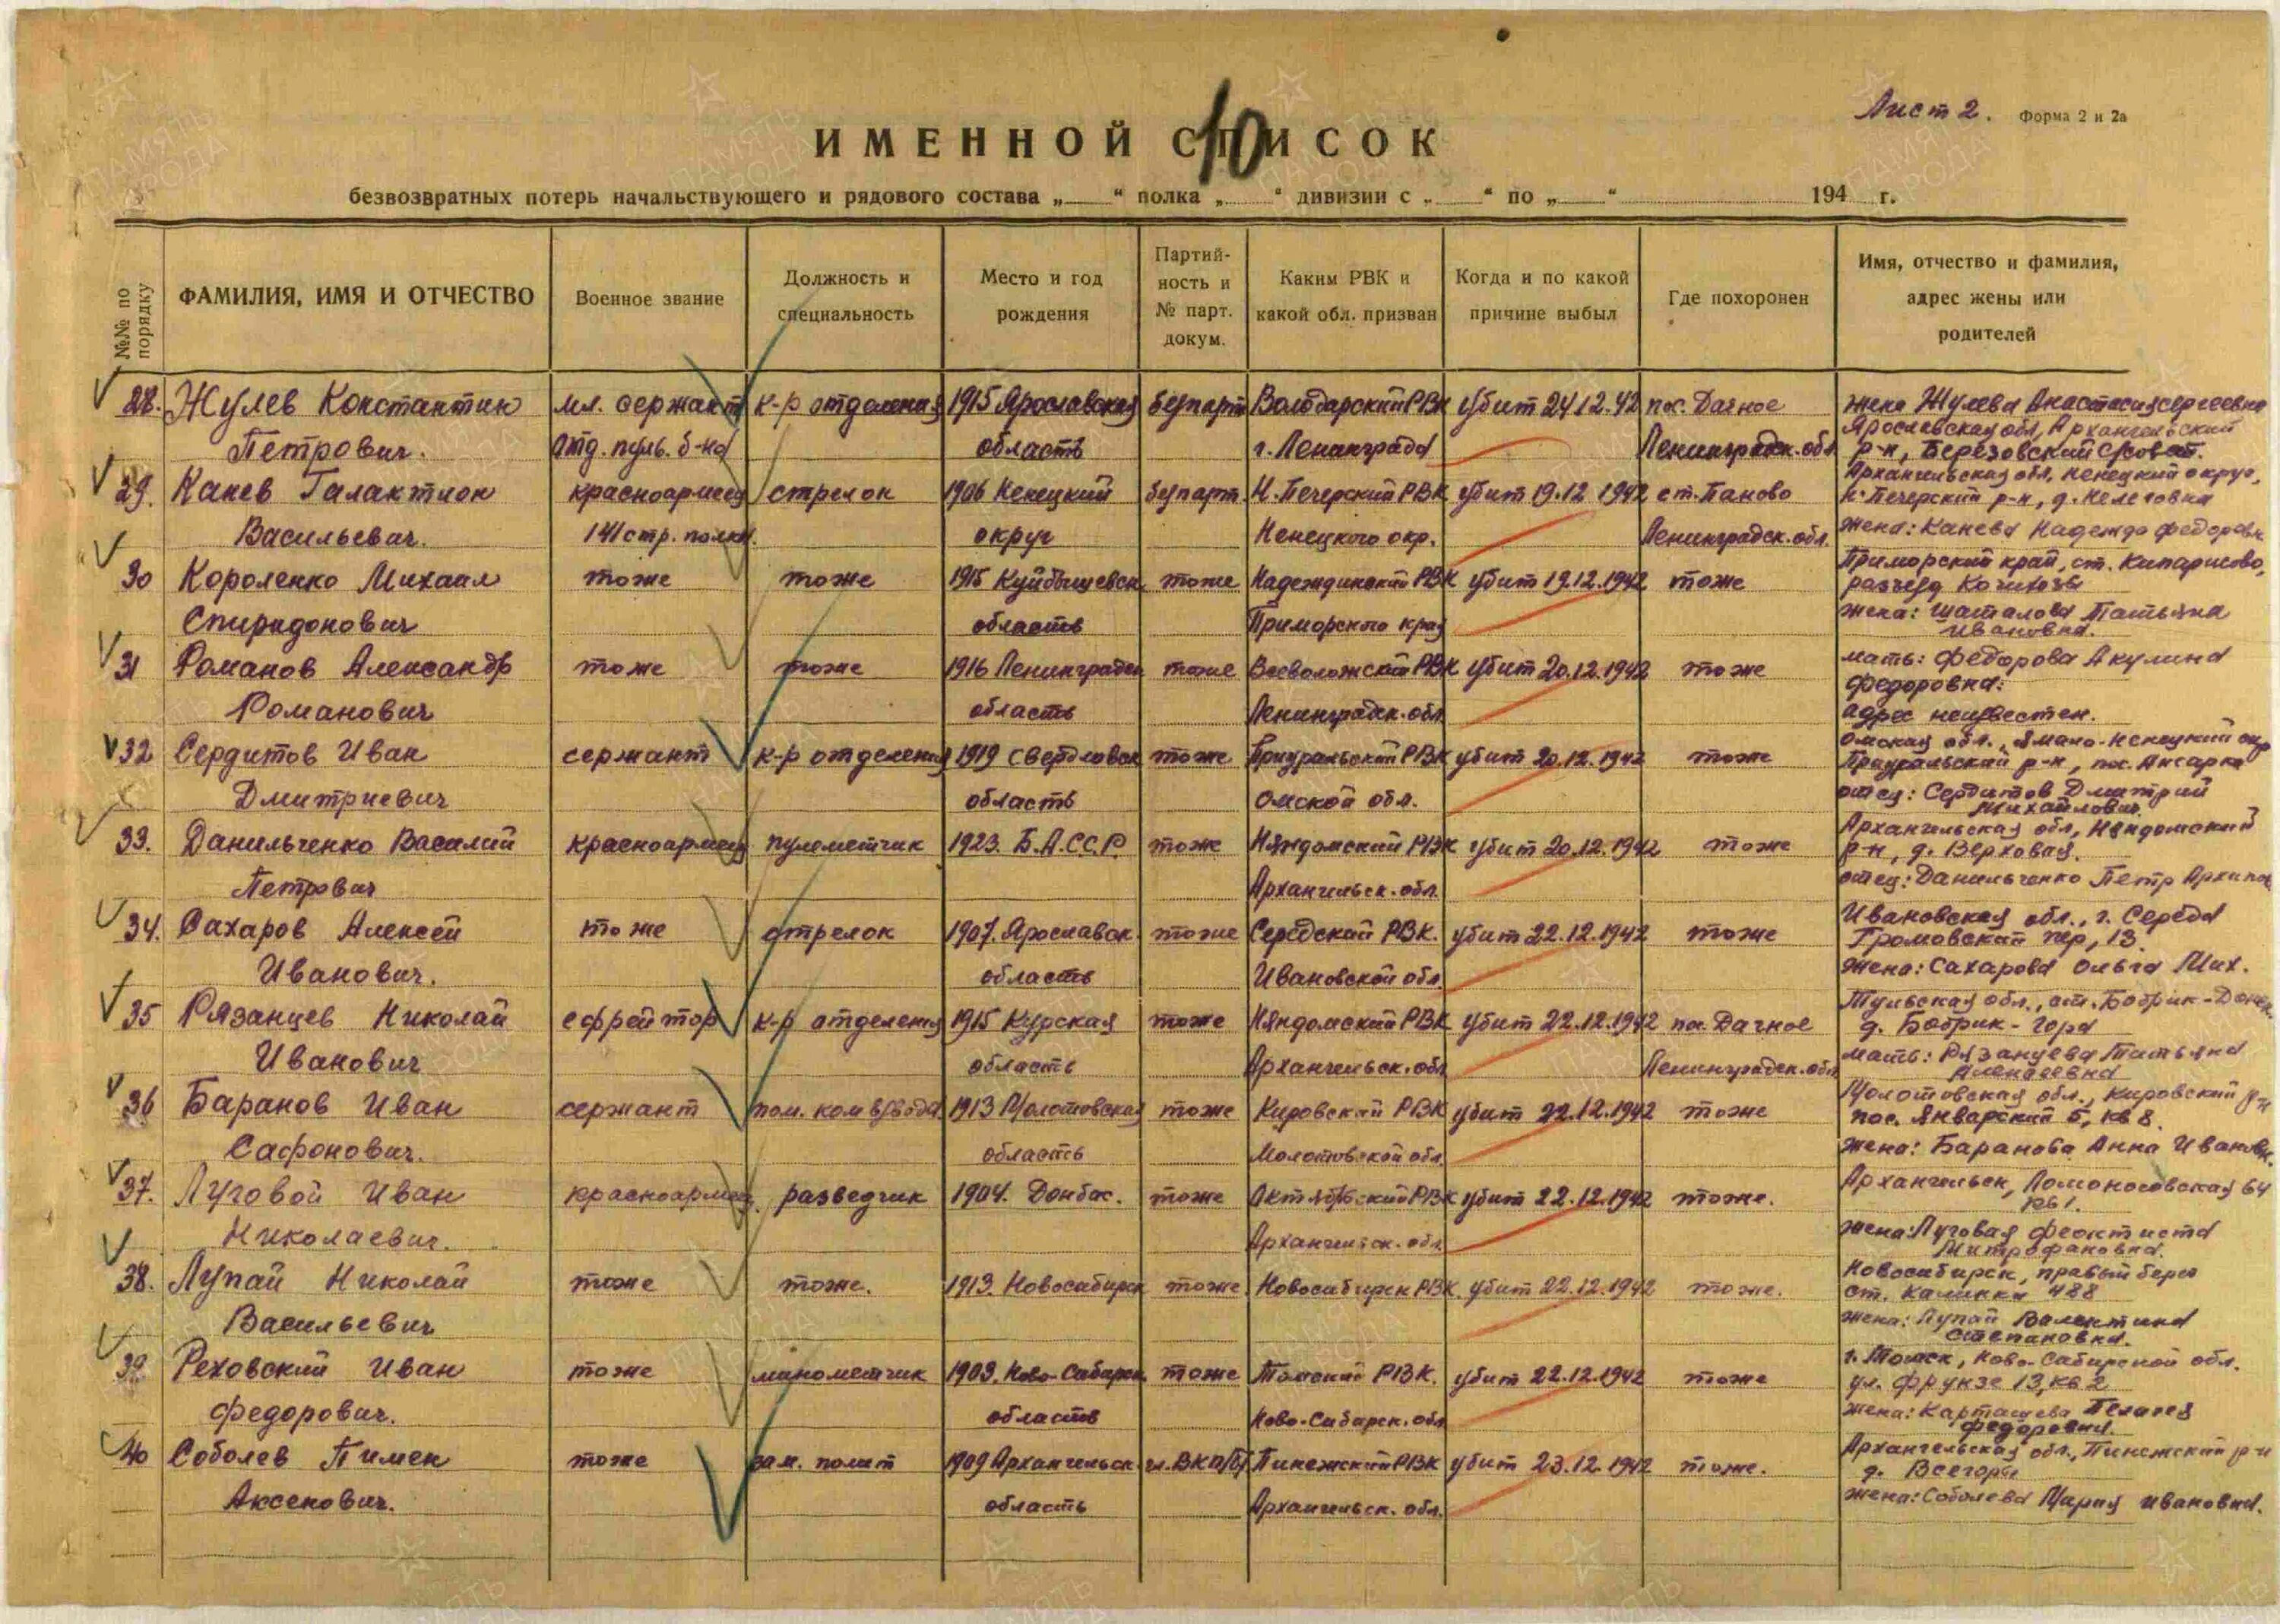 Лист 2. Форма 2 и 2а
10
ИМЕННОЙ СПИСОК
безвозвратных потерь начальствующего и рядового состава „ “ полка „ “ дивизии с „ “ по „ “ 194 г.
№№ по порядку
ФАМИЛИЯ, ИМЯ И ОТЧЕСТВО
Военное звание
Должность и
специальность
Место и год
рождения
Партий-
ность и
№ парт.
докум.
Каким РВК и
какой обл. призван
Когда и по какой
причине выбыл
Где похоронен
Имя, отчество и фамилия,
адрес жены или
родителей
28. Жулев Константин мл. сержант к-р отделения 1915 Ярославская беспарт Володарский РВК убит 24.12.42 пос. Дачное жена Жулева Анастасия сергеевна
Ярославская обл, Архангельский
Петрович. отд. пульб. б-на область г. Ленинграда Ленинградск. обл р-н, Березовский с/совет.
Архангельская обл, Ненецкий округ,
29. Канев Галактион красноармеец стрелок 1906 Ненецкий беспарт. Н. Печерский РВК убит 19.12 1942 ст. Паново Н-Печерский р-н, д.
Васильевич. 141 стр. полка. округ Ненецкого окр. Ленинградск. обл. жена: Канева Надежда Федоровн
Приморский край, ст. Кипарисово,
30 Короленко Михаил тоже тоже 1915 Куйбышевск тоже Надеждинский РВК убит 19.12.1942 тоже разъезд
жена: Шаталова Татьяна
Спиридонович область Приморского края Ивановна.
31 Романов Александр тоже тоже 1916 Ленинградск тоже Всеволожский РВК убит 20.12.1942 тоже мать: Федорова Акулина
Федоровна:
Романович область Ленинградск. обл адрес неизвестен.
Омская обл., Ямало-Ненецкий окр
32 Сердитов Иван сержант к-р отделения 1919 Свердловск тоже Приуральский РВК убит 20.12.1942 тоже Приуральский р-н, пос. Аксарка
отец: Сердитов Дмитрий
Дмитриевич область Омской обл. Михайлович.
Архангельская обл, Няндомский
33. Данильченко Василий красноармеец пулеметчик 1923. Б.А.С.С.Р. тоже Няндомский РВК убит 20.12.1942 тоже р-н, д. Верховая.
Петрович Архангельск. обл. отец: Данильченко Петр Архипов
Ивановская обл., г. Середа
34. Сахаров Алексей тоже стрелок 1907. Ярославск. тоже Середской РВК. убит 22.12.1942 тоже Громовский пер, 13.
Иванович. область Ивановской обл. жена: Сахарова Ольга Мих.
Тульская обл., ст. Бобрик-Донск.
35 Рязанцев Николай ефрейтор к-р отделения 1915 Курская тоже Няндомский РВК убит 22.12.1942 пос. Дачное д. Бобрик-Гора
мать: Рязанцева Татьяна
Иванович область Архангельск. обл Ленинградск. обл Алексеевна
Молотовская обл., Кировский р-н
36 Баранов Иван сержант пом. ком взвода 1913 Молотовская тоже Кировский РВК убит 22.12.1942 тоже пос. Январский 5, кв 8.
Сафонович. область Молотовской обл. жена: Баранова Анна Ивановн.
Архангельск, Ломоносовская 64
37. Луговой Иван красноармеец разведчик 1904. Донбас. тоже Октябрьский РВК убит 22.12.1942 тоже. кв1.
жена: Луговая Феоктиста
Николаевич. Архангельск. обл. Митрофановна.
Новосибирск, правый берег
38. Лупай Николай тоже тоже. 1913. Новосибирск тоже Новосибирск РВК. убит 22.12.1942 тоже. ст. Калинка 488
жена: Лупай Валентина
Васильевич Степановна.
г. Томск, Ново-Сибирской обл.
39. Реховский Иван тоже минометчик 1903. Ново-Сибирск тоже Томский РВК. убит 22.12.1942 тоже ул. Фрунзе 13, кв 2
жена: Карташева
Федорович. область Ново-Сибирск. обл Федоровна.
Архангельская обл., Пинежский р-н
40 Соболев Пимен тоже зам. полит 1909 Архангельск. чл. ВКП/б/ Пинежский РВК убит 23.12.1942 тоже. д. Всегоры
Аксенович. область Архангельск. обл. жена: Соболева Мария Ивановна.